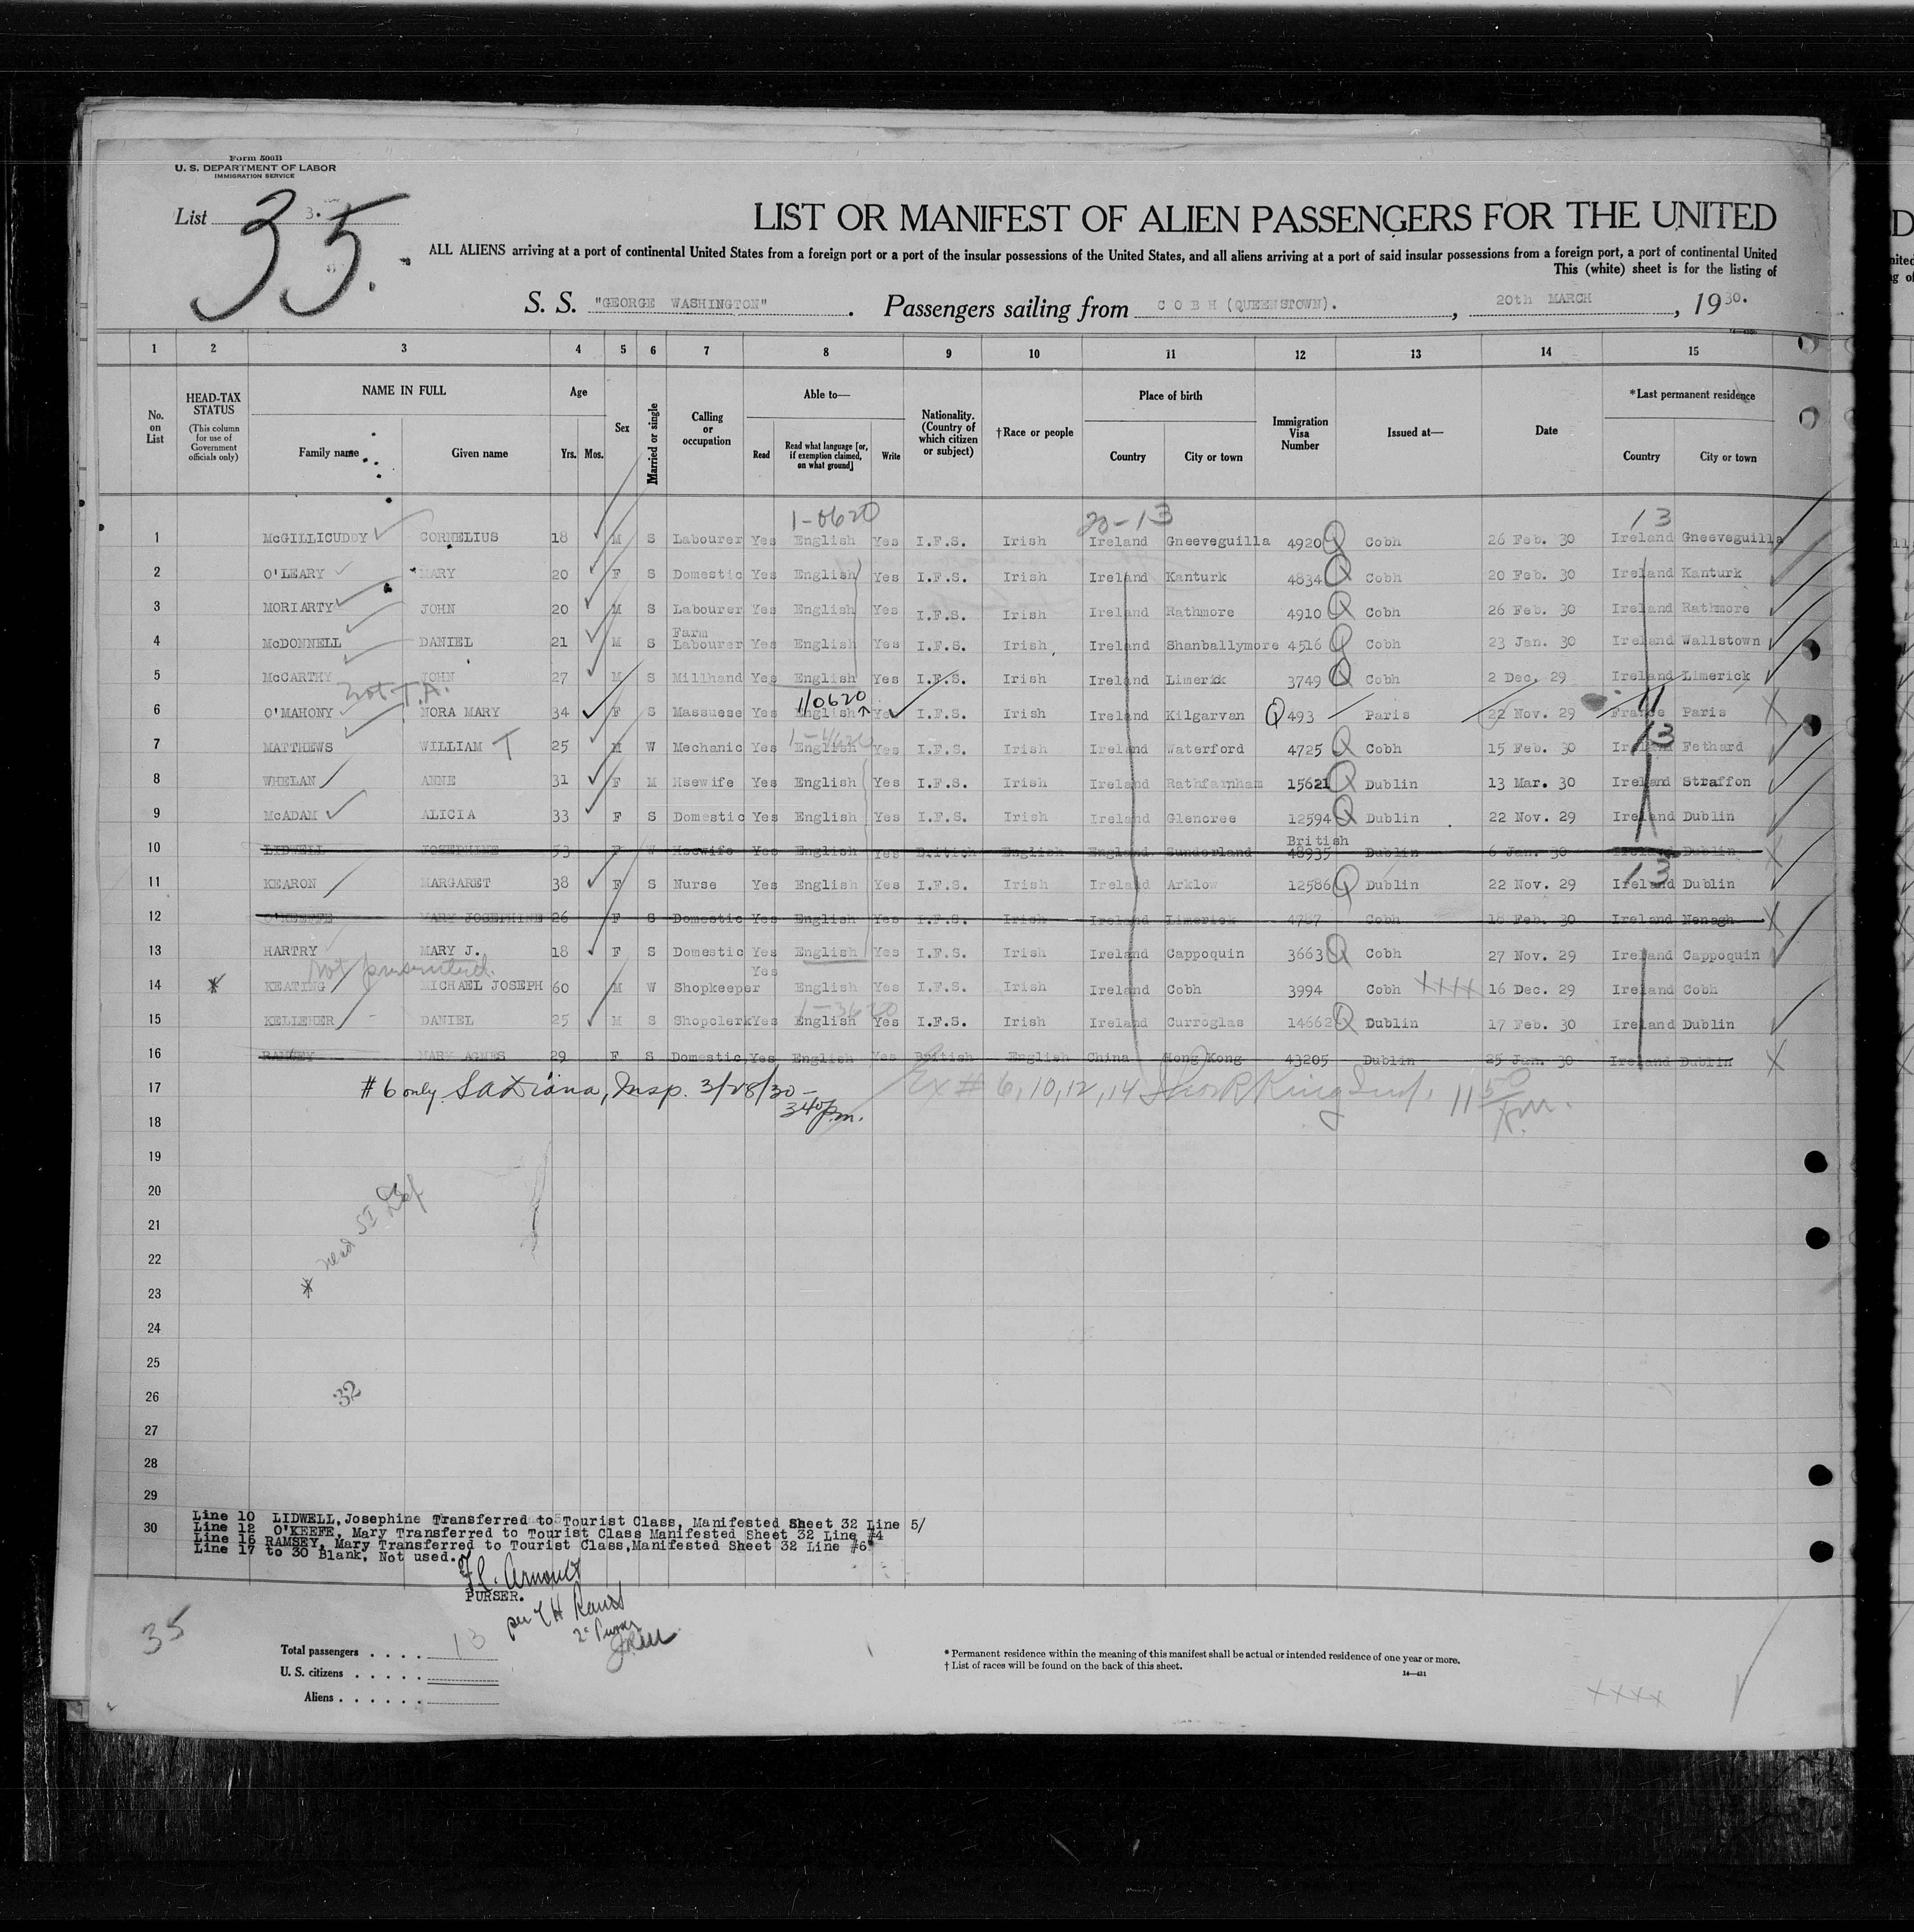 Form 500B
U. S. DEPARTMENT OF LABOR
IMMIGRATION SERVICE
List 3.
35.
LIST OR MANIFEST OF ALIEN PASSENGERS FOR THE UNITED
ALL ALIENS arriving at a port of continental United States from a foreign port or a port of the insular possessions of the United States, and all aliens arriving at a port of said insular possessions from a foreign port, a port of continental United
This (white) sheet is for the listing of
S. S. "GEORGE WASHINGTON". Passengers sailing from C O B H (QUEENSTOWN)., 20th MARCH, 1930.
1 2 3 4 5 6 7 8 9 10 11 12 13 14 15
No. on List
HEAD-TAX STATUS (This column for use of Government officials only)
NAME IN FULL Family name Given name
Age Yrs. Mos.
Sex
Married or single
Calling or occupation
Able to— Read Read what language [or, if exemption claimed, on what ground] Write
Nationality. (Country of which citizen or subject)
†Race or people
Place of birth Country City or town
Immigration Visa Number
Issued at—
Date
*Last permanent residence Country City or town
1-0620 20-13 13
1 McGILLICUDDY CORNELIUS 18 M S Labourer Yes English Yes I.F.S. Irish Ireland Gneeveguilla 4920 Q Cobh 26 Feb. 30 Ireland Gneeveguilla
2 O'LEARY MARY 20 F S Domestic Yes English Yes I.F.S. Irish Ireland Kanturk 4834 Q Cobh 20 Feb. 30 Ireland Kanturk
3 MORIARTY JOHN 20 M S Labourer Yes English Yes I.F.S. Irish Ireland Rathmore 4910 Q Cobh 26 Feb. 30 Ireland Rathmore
4 McDONNELL DANIEL 21 M S Farm Labourer Yes English Yes I.F.S. Irish Ireland Shanballymore 4516 Q Cobh 23 Jan. 30 Ireland Wallstown
5 McCARTHY JOHN 27 M S Millhand Yes English Yes I.F.S. Irish Ireland Limerick 3749 Q Cobh 2 Dec. 29 Ireland Limerick
not T.A. 1/0620 11
6 O'MAHONY NORA MARY 34 F S Massuese Yes English Yes I.F.S. Irish Ireland Kilgarvan Q 493 Paris 22 Nov. 29 France Paris
13
7 MATTHEWS WILLIAM T 25 M W Mechanic Yes English Yes I.F.S. Irish Ireland Waterford 4725 Q Cobh 15 Feb. 30 Ireland Fethard
8 WHELAN ANNE 31 F M Hsewife Yes English Yes I.F.S. Irish Ireland Rathfarnham 15621 Q Dublin 13 Mar. 30 Ireland Straffon
9 McADAM ALICIA 33 F S Domestic Yes English Yes I.F.S. Irish Ireland Glencree 12594 Q Dublin 22 Nov. 29 Ireland Dublin
British
10 LIDWELL JOSEPHINE 53 F W Hsewife Yes English Yes British English England Sunderland 48935 Dublin 6 Jan. 30 Ireland Dublin
13
11 KEARON MARGARET 38 F S Nurse Yes English Yes I.F.S. Irish Ireland Arklow 12586 Q Dublin 22 Nov. 29 Ireland Dublin
12 O'KEEFFE MARY JOSEPHINE 26 F S Domestic Yes English Yes I.F.S. Irish Ireland Limerick 4787 Cobh 18 Feb. 30 Ireland Nenagh
13 HARTRY MARY J. 18 F S Domestic Yes English Yes I.F.S. Irish Ireland Cappoquin 3663 Q Cobh 27 Nov. 29 Ireland Cappoquin
not presented.
14 * KEATING MICHAEL JOSEPH 60 M W Shopkeeper Yes English Yes I.F.S. Irish Ireland Cobh 3994 Cobh XXXX 16 Dec. 29 Ireland Cobh
1-3620
15 KELLEHER DANIEL 25 M S Shopclerk Yes English Yes I.F.S. Irish Ireland Curroglas 14662 Q Dublin 17 Feb. 30 Ireland Dublin
16 RAMSEY MARY AGNES 29 F S Domestic, Yes English Yes British English China Hong Kong 43205 Dublin 25 Jan. 30 Ireland Dublin
17 #6 only. Insp. 3/28/30 - Ex # 6, 10, 12, 14 King
340 p.m. 11 50
18
19
20
21
22
23
24
25
26
27
28
29
30
* held SI
32
Line 10 LIDWELL, Josephine Transferred to Tourist Class, Manifested Sheet 32 Line 5/
Line 12 O'KEEFE, Mary Transferred to Tourist Class Manifested Sheet 32 Line #4
Line 16 RAMSEY, Mary Transferred to Tourist Class, Manifested Sheet 32 Line #6
Line 17 to 30 Blank, Not used.
PURSER.
35
Total passengers . . . . 13
U. S. citizens . . . . .
Aliens . . . . . .
* Permanent residence within the meaning of this manifest shall be actual or intended residence of one year or more.
† List of races will be found on the back of this sheet.
14—421
XXXX